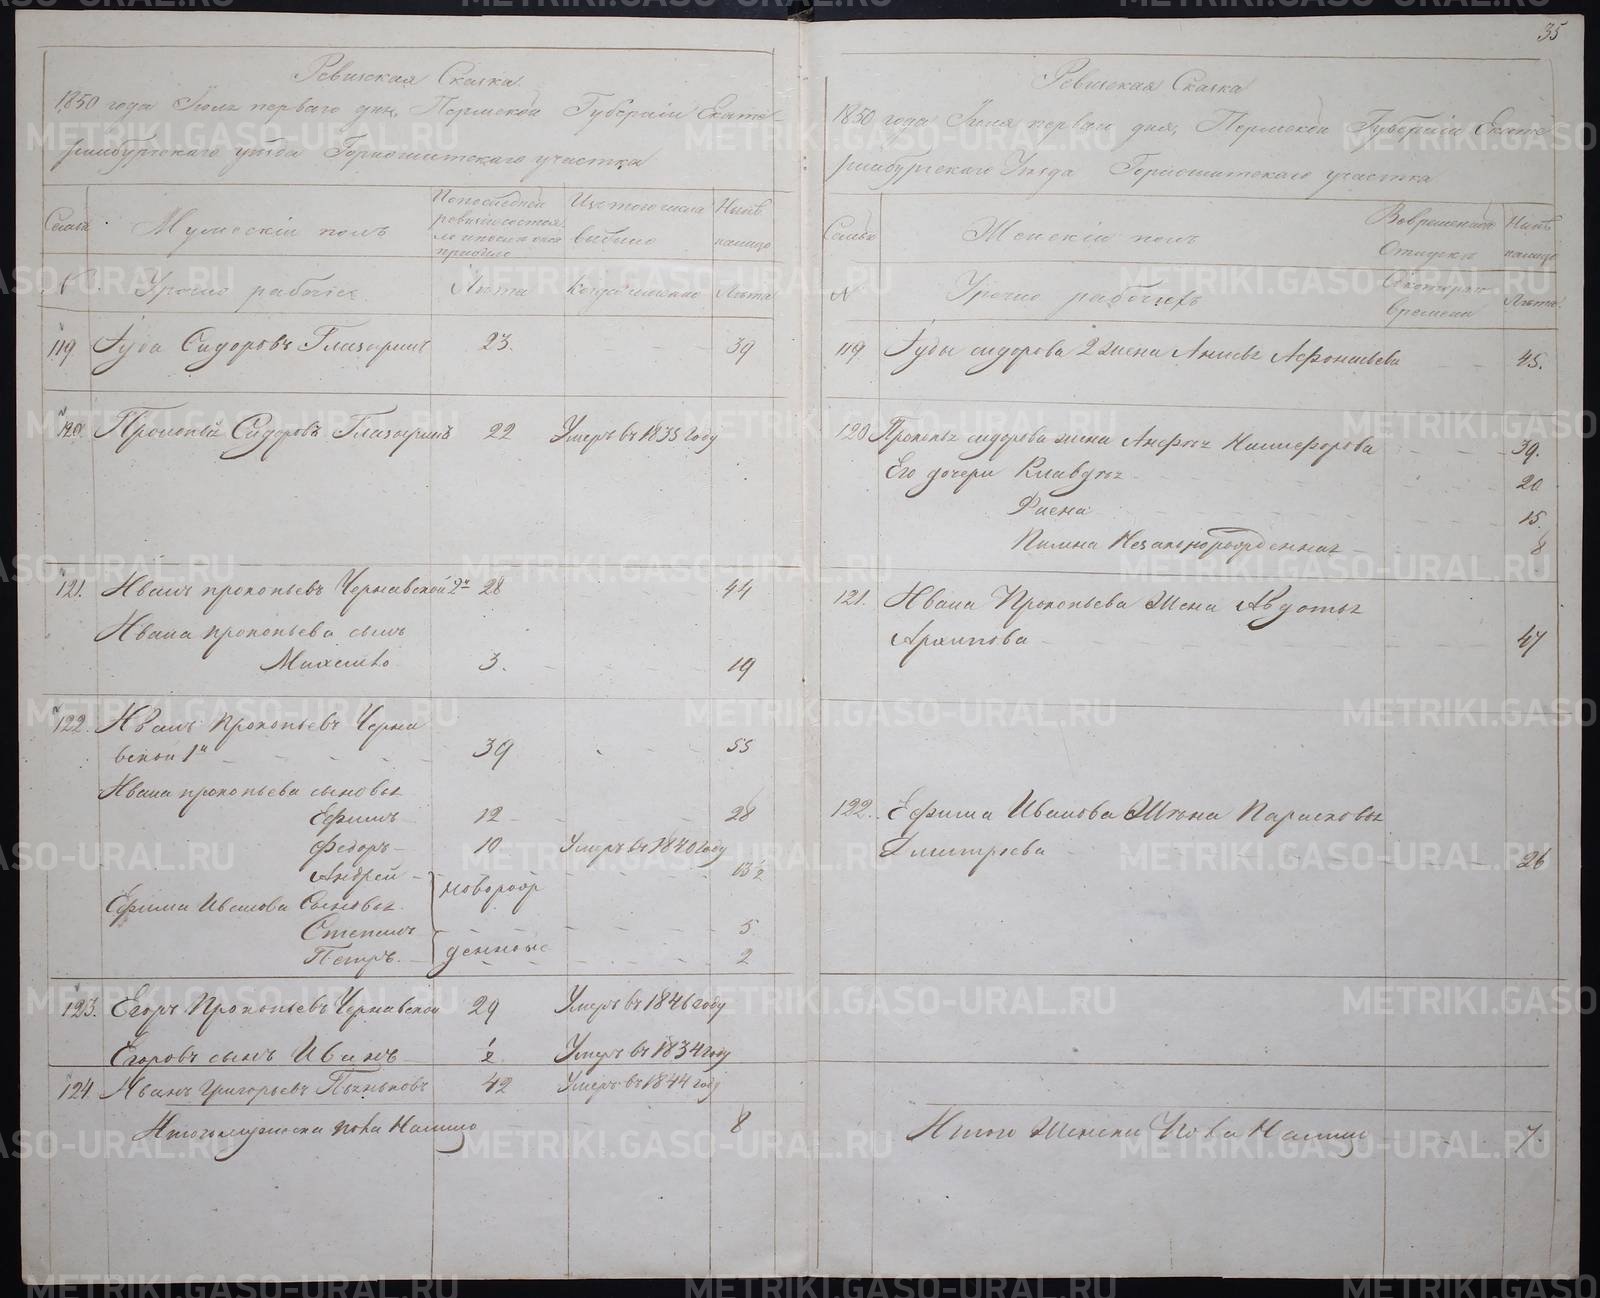 35
Ревизская Сказка
1850 года Июня перваго дня, Пермской Губерніи Екате-
ринбургскаго уезда Горнощитскаго участка
Семьи
Мужескій полъ
По последней ревизіи состояло и после онаго прибыло
Изъ того числа выбыло
Ныне налицо
№
Урочно рабочіе
Лета
Когда именно
Лета
119 Іуда Сидоровъ Глазыринъ 23. 39
120 Прокопій Сидоровъ Глазыринъ 22 Умеръ въ 1835 году
121. Иванъ прокопьевъ Чернавской 2й 28 44
Ивана прокопьева сынъ
Михаило 3. 19
122. Иванъ Прокопьевъ Черна
вской 1й 39 55
Ивана прокопьева сыновья
Ефимъ 12 28
Федоръ 10 Умеръ въ 1840 году
Андрей новорож 13½
Ефима Иванова Сыновья
Степанъ 5
Петръ. денные 2
123. Егоръ Прокопьевъ Чернавской 29 Умеръ въ 1846 году
Егоровъ сынъ Иванъ ½ Умеръ въ 1834 году
124. Иванъ Григорьевъ Пеньковъ 42 Умеръ въ 1844 году
Итого мужеска пола Налицо 8
Ревизская Сказка
1850 года Июня перваго дня, Пермской Губерніи Екате-
ринбургскаго Уезда Горнощитскаго участка
Семьи
Женскій полъ
Во временной Отлучке
Ныне налицо
№
Урочно рабочихъ
Съ котораго времени
Лета
119 Іуды сидорова 2 жена Анисья Афонасьева 45.
120 Прокопья сидорова жена Анфиса Никифорова 39.
Его дочери Клавдія 20
Раена 15.
Полина Незаконорожденная 8
121. Ивана Прокопьева Жена Авдотья
Архипова 47
122. Ефима Иванова Жена Парасковья
Дмитриева 26
Итого Женска Пола Налицо 7.